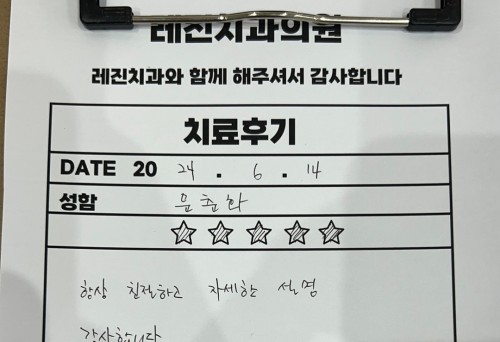 레진치과의원
레진치과와 함께 해주셔서 감사합니다
치료후기
DATE 20 24 . 6 . 14
성함 윤춘화
항상 친절하고 자세한 설명
감사합니다